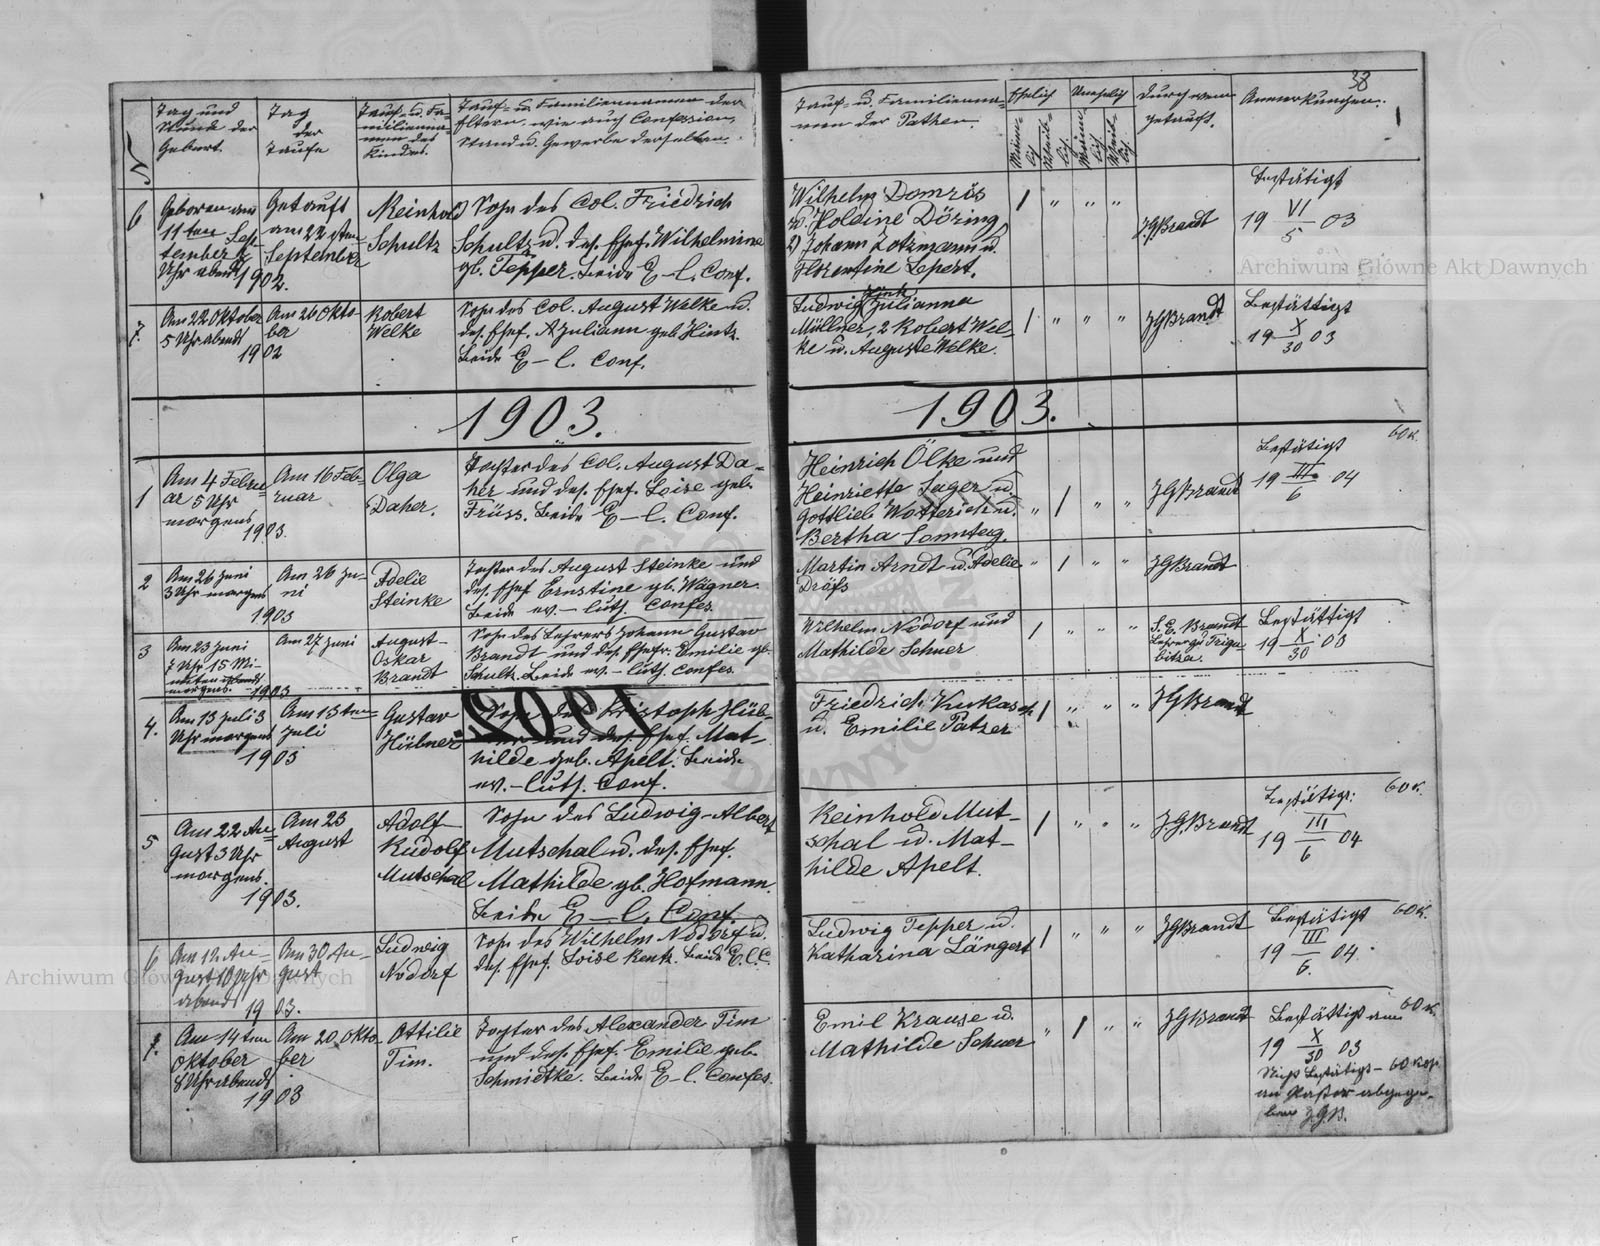 38
N
Tag und
Stunde der
Geburt.
Tag
der
Taufe
Tauf- u. Fa-
milienna-
men des
Kindes.
Tauf- u. Familiennamen der
Eltern, wie auch Confession,
Stand u. Gewerbe derselben.
Tauf- u. Familienna-
men der Pathen.
Ehelich
Unehelich
Männ-
lich
Weib-
lich
Männ-
lich
Weib-
lich
Durch wem
getauft.
Anmerkungen.
6
Geboren am
11ten Sep-
tember
Uhr abend
1902.
Getauft
am 22sten
September
Reinhold
Schultz
Sohn des Col. Friedrich
Schultz u. des. Ehef. Wilhelmine
gb. Tepper. Beide E-l. Conf.
Wilhelm Domrös
u. Holdine Döring,
2) Johann Lotzmann u.
Florentine Lepert.
1 " " "
J.G Brandt
Bestätigt
19 VI/5 03
7.
Am 22 Oktober
5 Uhr abend
1902
Am 26 Okto-
ber
Robert
Welke
Sohn des Col. August Welke u.
des. Ehef. Juliann geb. Hintz.
Beide E-l. Conf.
Ludwig Juliana
Müllner, 2 Robert Wel-
ke u. Auguste Welke.
1 " " "
JGBrandt
Bestättigt
19 X/30 03
1903.
1903.
1
Am 4 Febru-
ar 5 Uhr
morgens
1903.
Am 16 Feb-
ruar
Olga
Daher.
Tochter des Col. August Da-
her und des. Ehef. Loise geb.
Früss. Beide E-l. Conf.
Heinrich Ölke und
Heinriette Jager u.
Gottlieb Wotterich u.
Bertha Sonntag.
" 1 " "
JGBrandt
Bestätigt
19 III/6 04
60 K.
2
Am 26 Juni
3 Uhr morgens
1903
Am 26 Ju-
ni
Adelie
Steinke
Tochter des August Steinke und
des. Ehef Ernstine gb. Wagner.
Beide ev.-luth. Confes.
Martin Arndt u. Adelie
Dräfs
" 1 " "
JGBrandt
3
Am 23 Juni
7 Uhr 15 Mi-
nuten
morgens. 1903
Am 27 Juni
August-
Oskar
Brandt
Sohn des Lehrers Johann Gustav
Brandt und des. Ehefr. Emilie gb.
Schultz. Beide ev.-luth. Confes.
Wilhelm Nodorf und
Mathilde Scheer
1 " " "
S.E. Brandt
Bestättigt
19 X/30 03
4.
Am 13 Juli 3
Uhr morgens
1903
Am 13ten
Juli
Gustav
Hübner
Sohn des Kristoph Hüb-
ner und des. Ehef. Mat-
hilde geb. Apelt. Beide
ev.-luth. Conf.
Friedrich Kukasch
u. Emilie Patzer
1 " " "
JGBrandt
5
Am 22 Au-
gust 3 Uhr
morgens.
1903.
Am 23
August
Adolf
Rudolf
Mutschal
Sohn des Ludwig-Albert
Mutschal u. des. Ehef.
Mathilde gb. Hofmann.
Beide E-l. Conf.
Reinhold Mut-
schal u. Mat-
hilde Apelt.
1 " " "
JGBrandt
Bestätigt:
19 III/6 04
60 K.
6
Am 12 Au-
gust 10 Uhr
abends
1903.
Am 30 Au-
gust
Ludwig
Nodorf
Sohn des Wilhelm Nodorf u.
des. Ehef. Loise Rentz. Beide E.l.C.
Ludwig Tepper u.
Katharina Längert
1 " " "
JGBrandt
Bestätigt
19 III/6. 04.
60 K.
7.
Am 14ten
Oktober
8 Uhr abends
1903
Am 20. Okto-
ber
Ottilie
Tim.
Tochter des Alexander Tim
und des. Ehef. Emilie geb.
Schmidtke. Beide E-l. Confes.
Emil Krause u.
Mathilde Scheer
" 1 " "
JGBrandt
Bestättigt am
19 X/30 03
60 K.
Nicht bestätigt - 60 Kop.
an Pastor abgege-
ben J.G.B.
1902
Archiwum Główne Akt Dawnych
Archiwum Główne Akt Dawnych